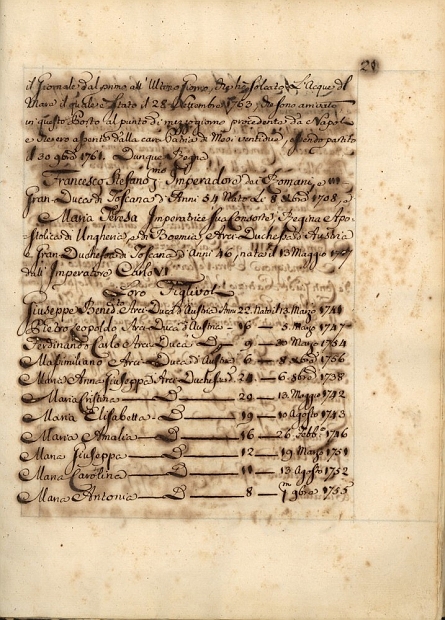 21
il Giornale dal primo all' Ultimo Giorno, che hò Solcato L'Acque del
Mare il quale è Stato il 28 Settembre 1763, che sono arrivato
in questo Porto al punto di mezzogiorno procedente da Napoli
e Stesero a ponto dalla cara Patria di Mesi ventidue, essendo partito
il 30 9bre 1761. Dunque Regna
Francesco Stefano Imperadore dei Romani, e
Gran Duca di Toscana d'Anni 54 Nato Le 8 Xbre 1708, e
Maria Teresa Imperatrice sua Consorte, Regina Apo-
stolica di Ungheria, e di Boemia, Arci-Duchessa d'Austria
e Gran Duchessa di Toscana d'Anni 46, nata il 13 Maggio
dall' Imperatore Carlo VI
Loro Figlivoli
Giuseppe Bened.to Arci-Duca d'Austria Anni 22 Nato il 13 Marzo 1741
Pietro Leopoldo Arci-Duca d'Austria — 16 — 5 Marzo 1747
Ferdinando Carlo Arci-Duca — D — 9 — Marzo 1754
Massimiliano Arci-Duca d'Austria — 6 — 8 Xbre 1756
Maria Anna Giuseppa Arci-Duchessa — 24 — 6 8bre 1738
Maria Cristina — D — 20 — 13 Maggio 1742
Maria Elisabetta — D — 19 — Agosto 1743
Maria Amalia — D — 16 — 26 Febb.o 1746
Maria Giuseppa — D — 12 — 19 Marzo 1751
Maria Carolina — D — 11 — 13 Agosto 1752
Maria Antonia — D — 8 — 9bre 1755